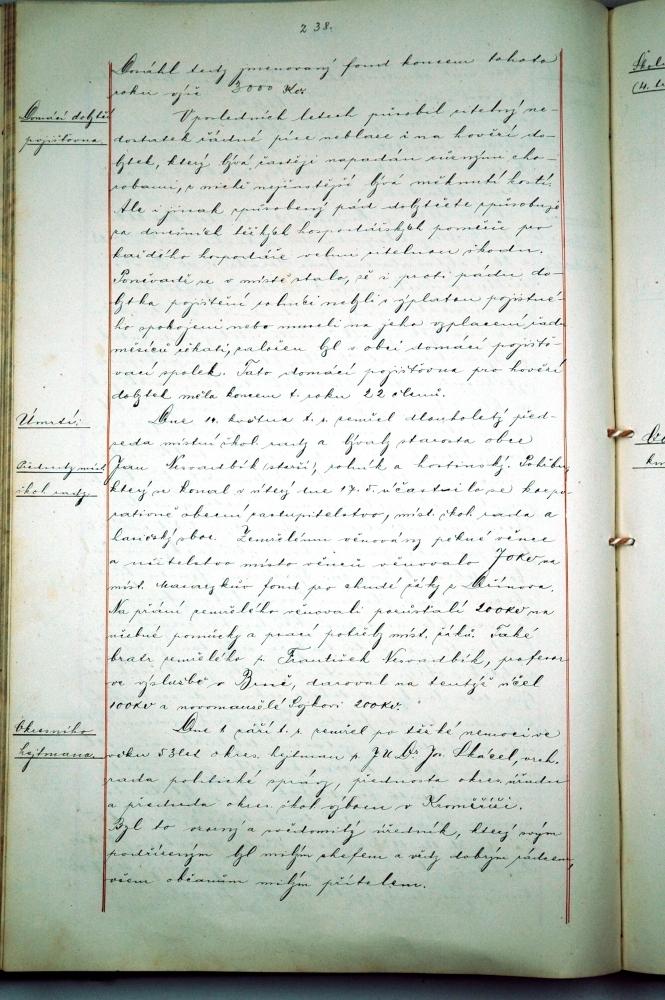 238.
Domáhl tedy jmenovaný fond koncem tohoto
roku výše 3000 Kč.
Domácí dobytčí
pojišťovna.
V posledních letech působil citelný ne-
dostatek řádné píce neblaze i na hovězí do-
bytek, který bývá častěji napadán různými cho-
robami, z nichž nejčastější bývá měknutí kostí.
Ale i jinak způsobený pád dobytčete způsobuje
za dnešních těžkých hospodářských poměrů pro
každého hospodáře velmi citelnou škodu.
Poněvadž se v místě stalo, že i proti pádu do-
bytka pojištění rolníci nebyli s výplatou pojistné-
ho spokojeni nebo museli na jeho vyplacení řadu
měsíců čekati, založen byl v obci domácí pojišťo-
vací spolek. Tato domácí pojišťovna pro hovězí
dobytek měla koncem t. roku 22 členů.
Úmrtí:
Předsedy míst.
škol. rady.
Dne 14. května t. r. zemřel dlouholetý před-
seda místní škol. rady a bývalý starosta obce
Jan Nesvadbík starší, rolník a hostinský. Pohřbu,
který se konal v úterý dne 17. 5. účastnilo se korpo-
rativně obecní zastupitelstvo, míst. škol. rada a
hasičský sbor. Zemřelému věnovány pěkné věnce
a učitelstvo místo věnců věnovalo 70 Kč na
míst. Masarykův fond pro chudé žáky z
Na přání zemřelého věnovali pozůstalí 200 Kč na
učebné pomůcky a psací potřeby míst. žáků. Také
bratr zemřelého p. František Nesvadbík, profesor
ve výslužbě v Brně, daroval na tentýž účel
100 Kč a novomanželé Sojkovi 200 Kč.
Okresního
hejtmana.
Dne 1. září t. r. zemřel po těžké nemoci ve
věku 53 let okres. hejtman p. JU Dr. Jos. Skácel, vrch.
rada politické správy, přednosta okres. úřadu
a předseda okres. škol. výboru v Kroměříži.
Byl to vzorný a svědomitý úředník, který svým
podřízeným byl milým shefem a vždy dobrým rádcem,
všem občanům milým přítelem.